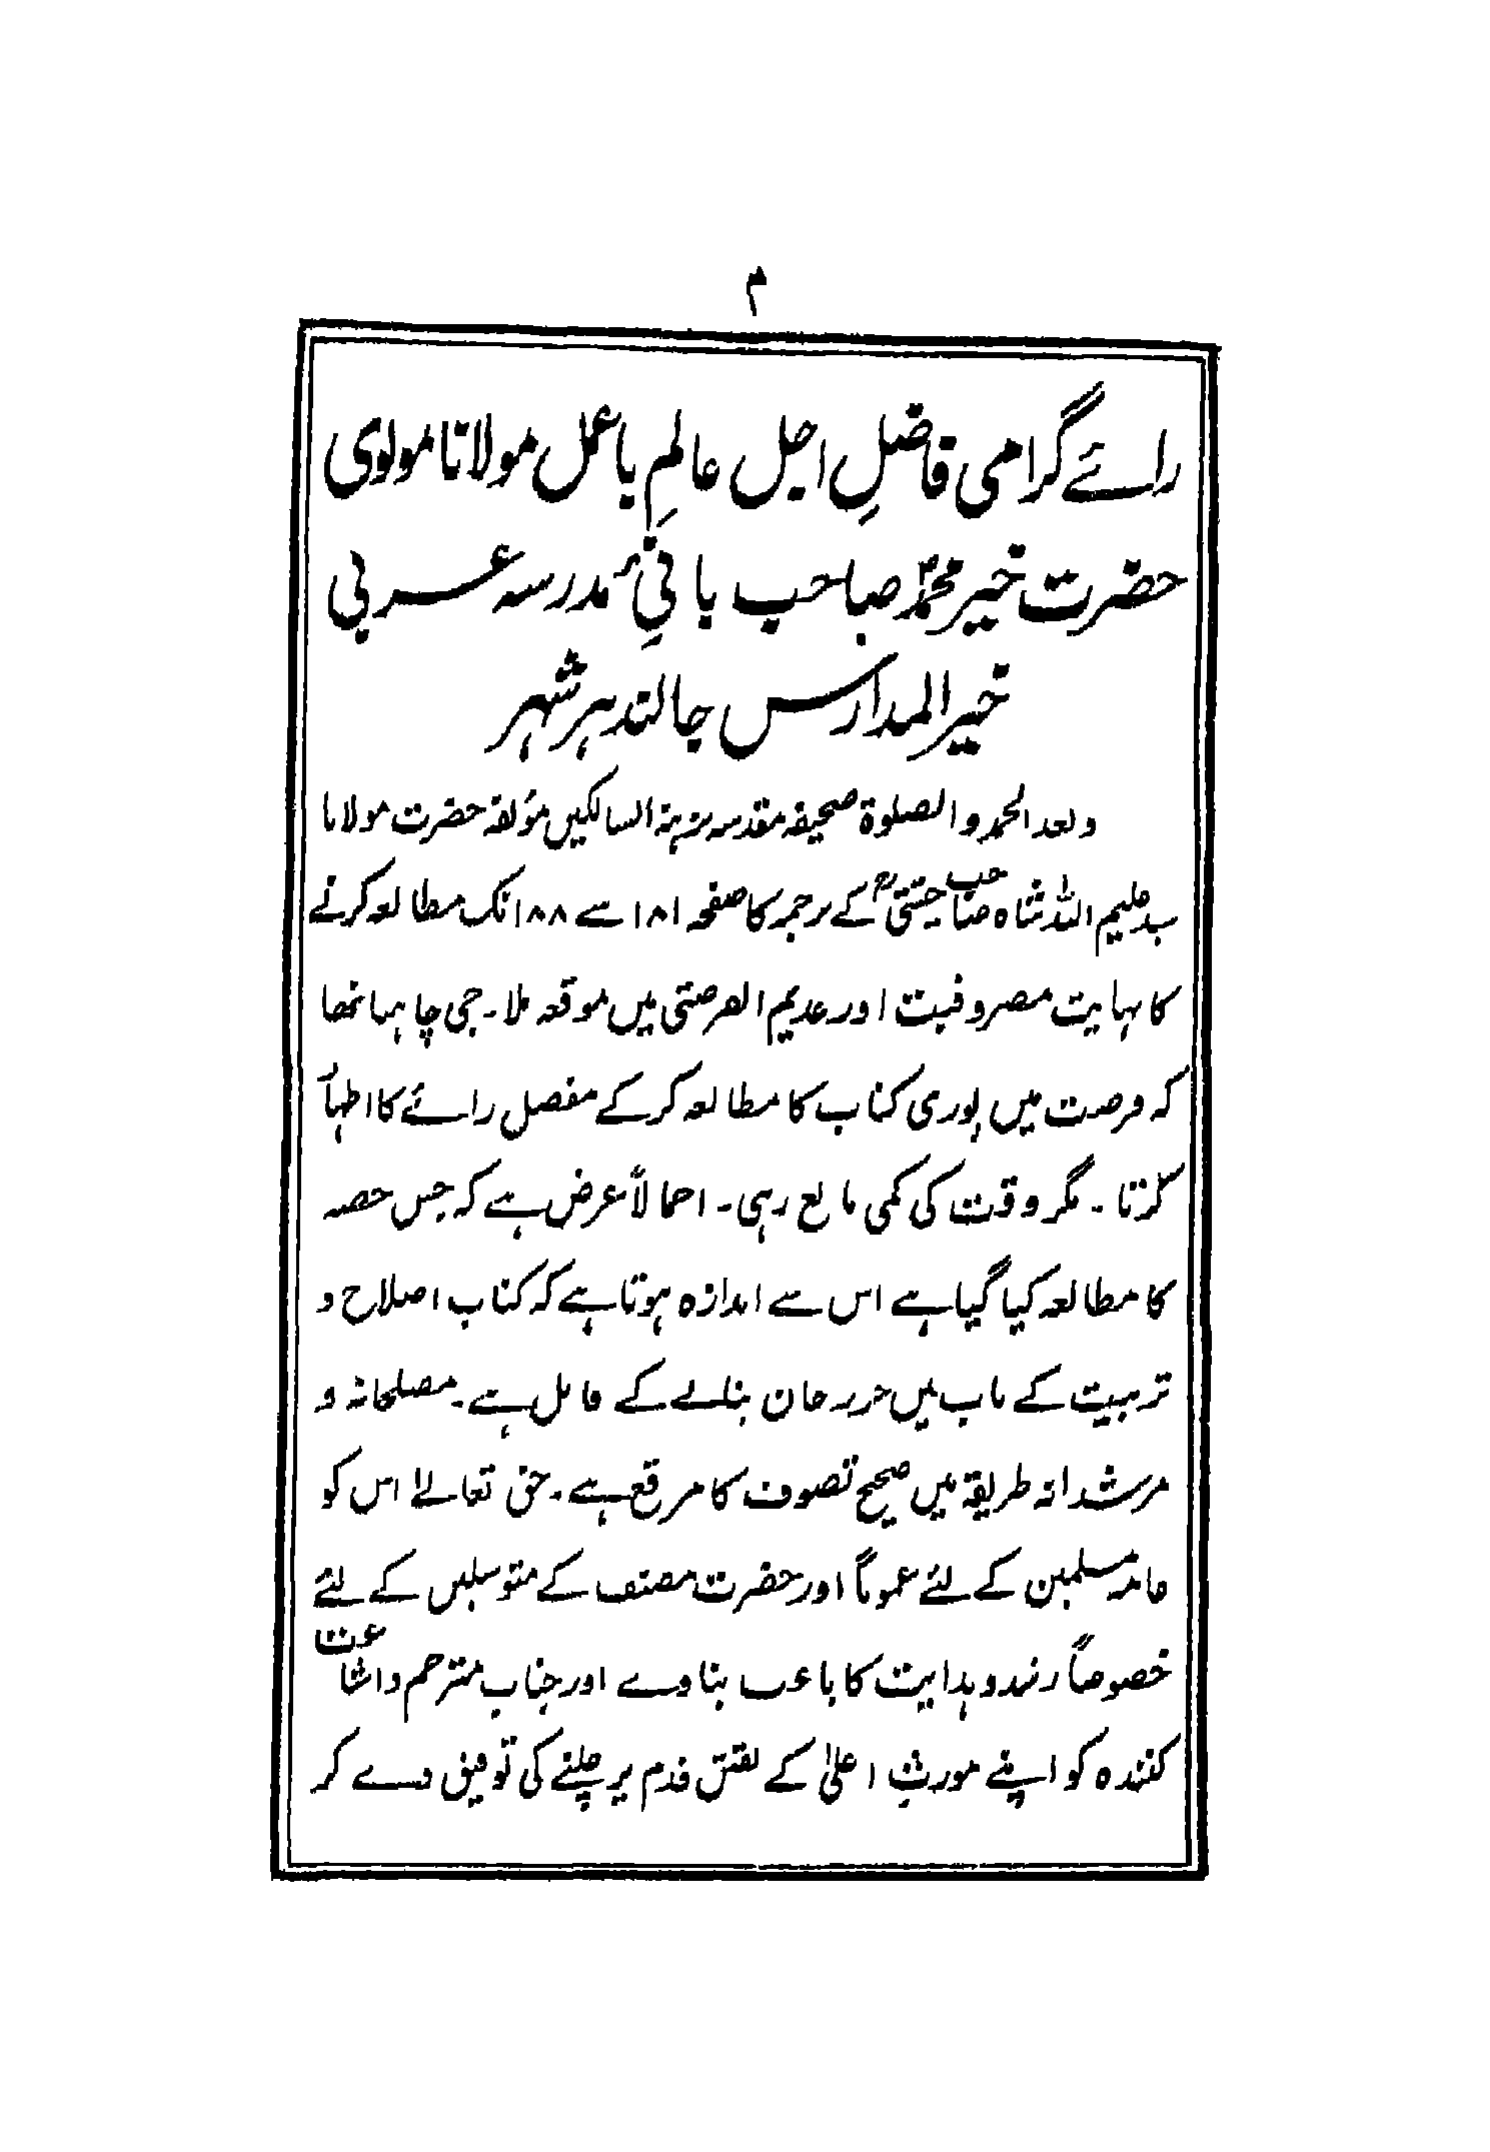 م
رائے گرامی فاضلِ اجل عالمِ باعمل مولانا مولوی
حضرت خیر محمدؐ صاحب بانیٔ مدرسہ عربی
خیر المدارس جالندہر شہر
و بعد الحمد و الصلوٰة صحیفہ مقدسہ نزہة السالکین مؤلفہ حضرت مولانا
سید علیم اللہ شاہ صاحب چشتیؒ کے ترجمہ کا صفحہ ۱۸۱ سے ۱۸۸ تک مطالعہ کرنے
کا نہایت مصروفیت اور عدیم الفرصتی میں موقعہ ملا۔ جی چاہتا تھا
کہ فرصت میں پوری کتاب کا مطالعہ کرکے مفصل رائے کا اظہار
کرتا۔ مگر وقت کی کمی مانع رہی۔ اجمالاً عرض ہے کہ جس حصہ
کا مطالعہ کیا گیا ہے اس سے اندازہ ہوتا ہے کہ کتاب اصلاح و
تربیت کے باب میں حرز جان بنانے کے قابل ہے۔ مصلحانہ و
مرشدانہ طریقہ میں صحیح تصوف کا مرقع ہے۔ حق تعالےٰ اس کو
عامہ مسلمین کے لئے عموماً اور حضرت مصنف کے متوسلین کے لئے
خصوصاً رشد و ہدایت کا باعث بناوے اور جناب مترجم و اشاعت
کنندہ کو اپنے مورثِ اعلیٰ کے نقش قدم پر چلنے کی توفیق دے کر